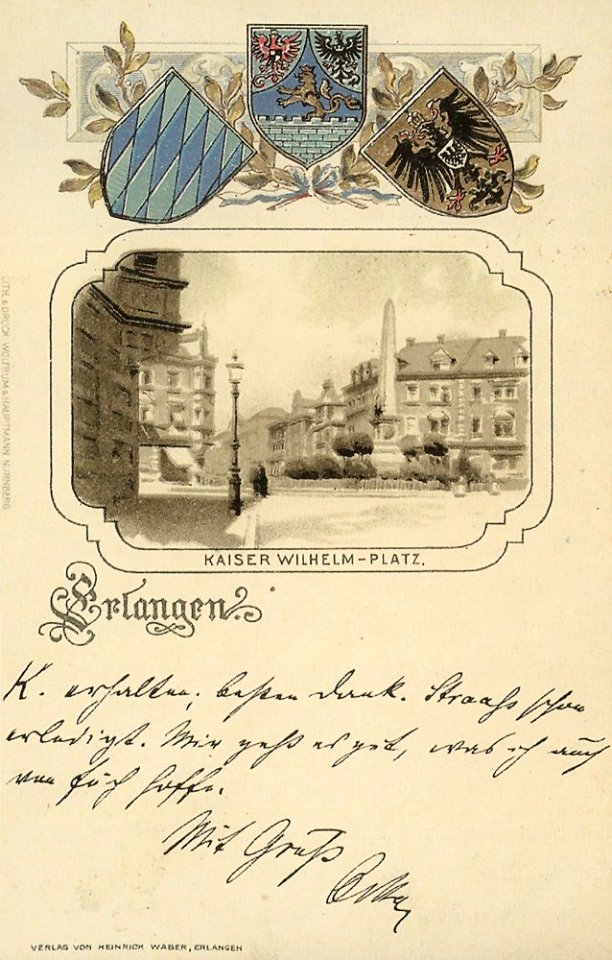 LITH. & DRUCK WOLFRUM & HAUPTMANN NÜRNBERG
KAISER WILHELM-PLATZ.
Erlangen.
K. erhalten, besten Dank. schon
erledigt. Mir geht es gut, was ich auch
von Euch hoffe.
Mit Gruß
VERLAG VON HEINRICH WABER, ERLANGEN